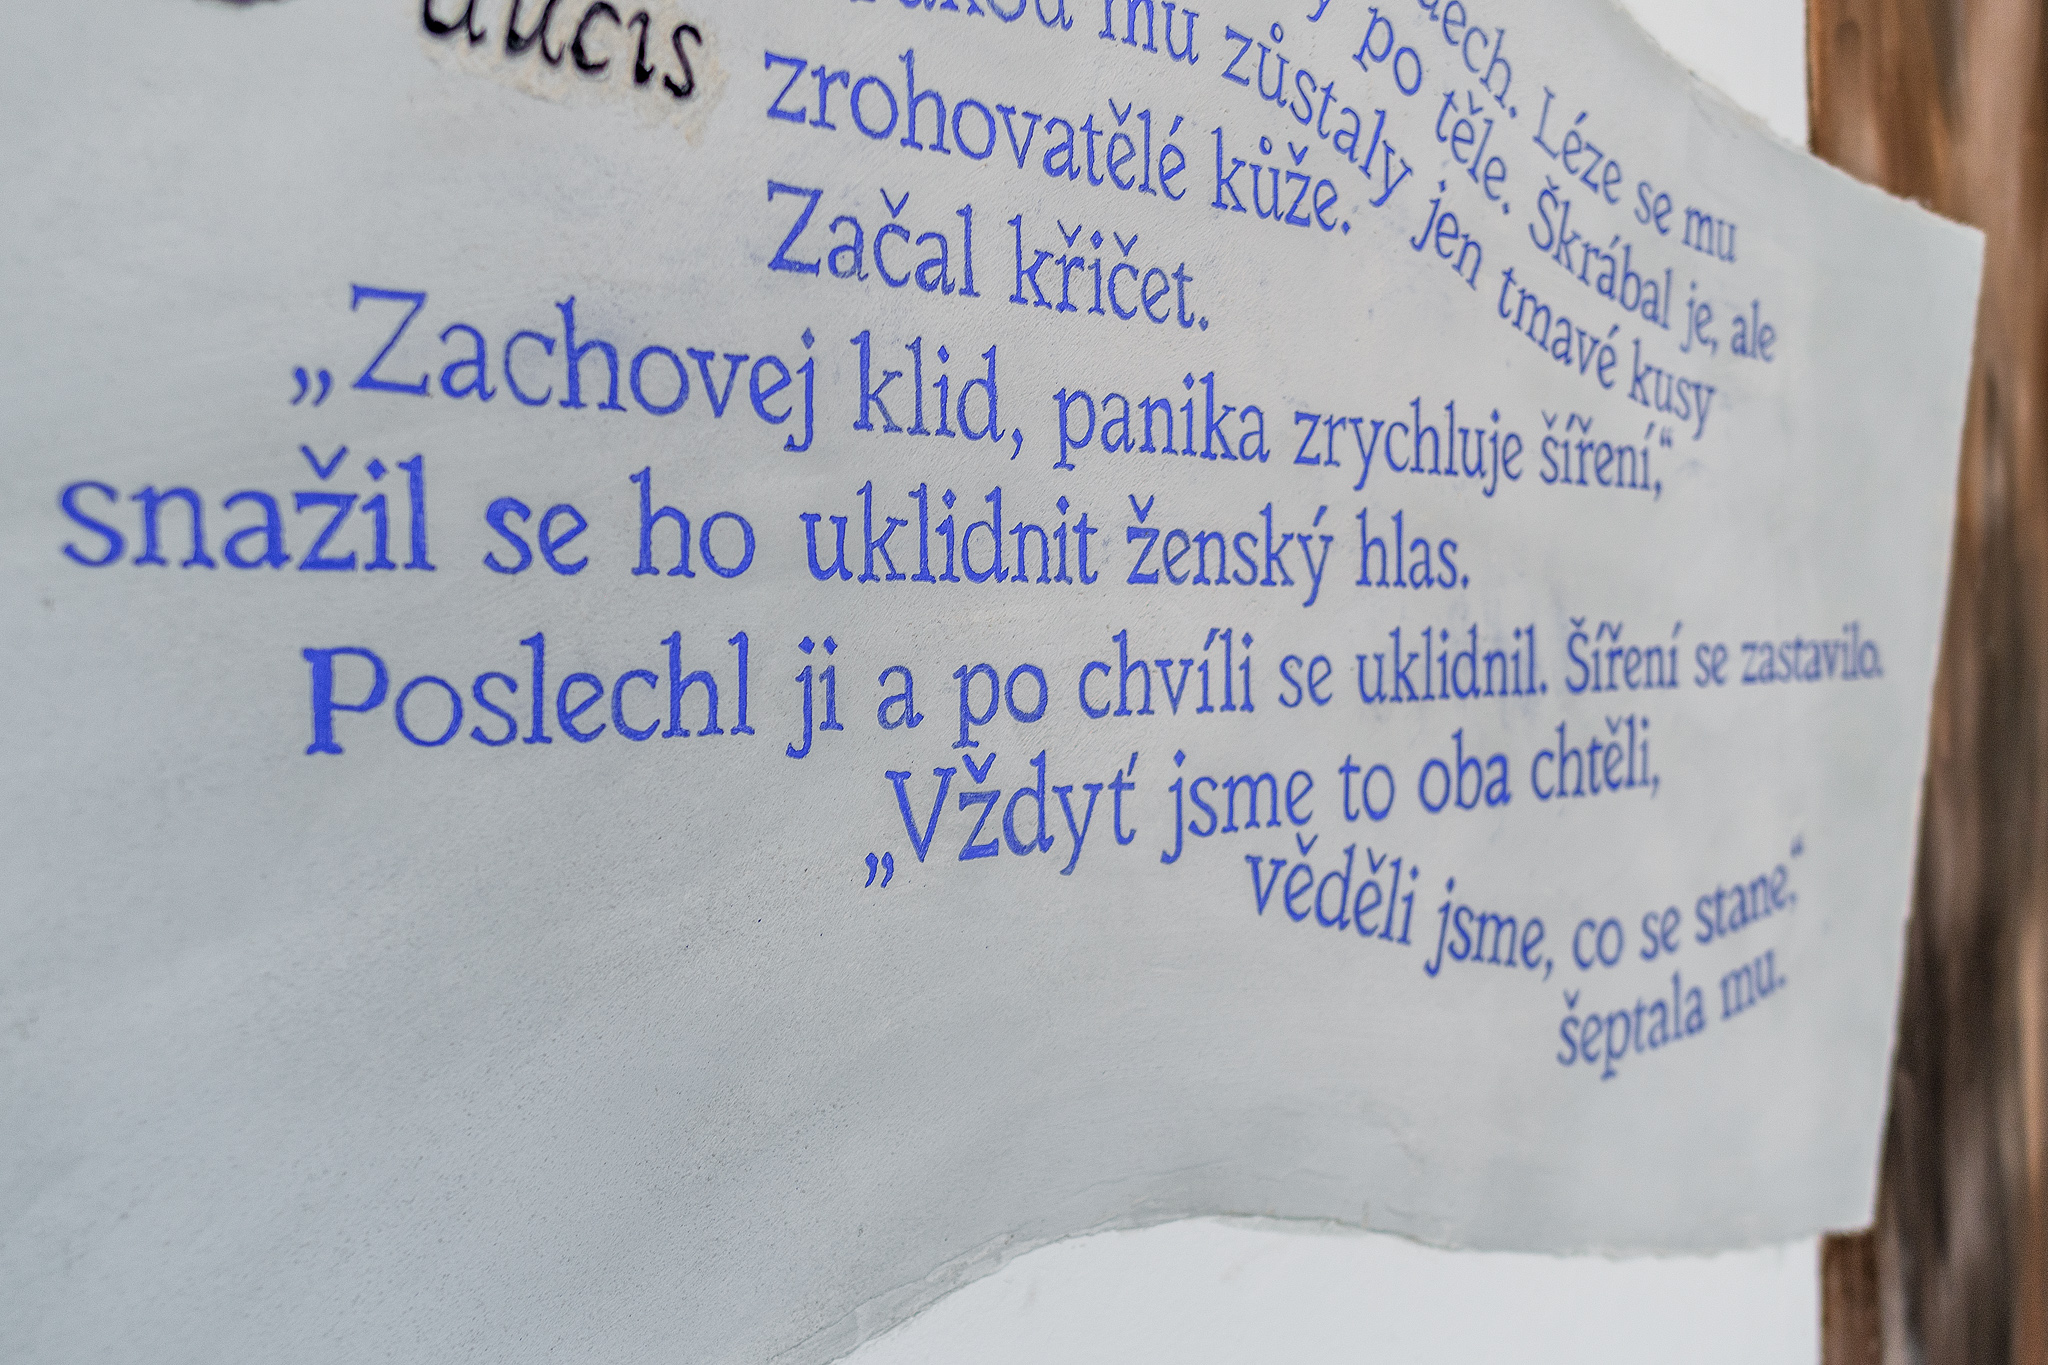 Léze se mu
po těle. Škrábal je, ale
mu zůstaly jen tmavé kusy
zrohovatělé kůže.
Začal křičet.
„Zachovej klid, panika zrychluje šíření,“
snažil se ho uklidnit ženský hlas.
Poslechl ji a po chvíli se uklidnil. Šíření se zastavilo.
„Vždyť jsme to oba chtěli,
věděli jsme, co se stane,“
šeptala mu.